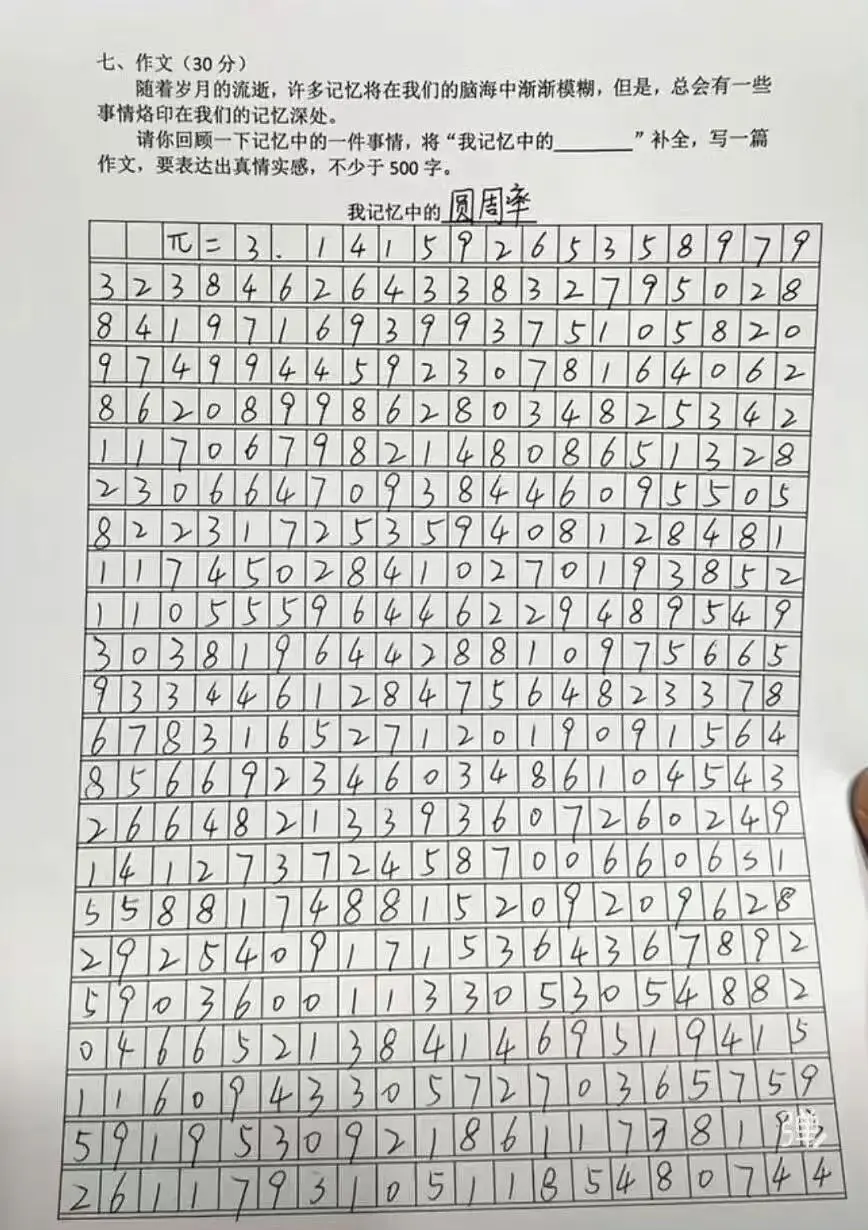 七、作文（30 分）
随着岁月的流逝，许多记忆将在我们的脑海中渐渐模糊，但是，总会有一些
事情烙印在我们的记忆深处。
请你回顾一下记忆中的一件事情，将“我记忆中的________”补全，写一篇
作文，要表达出真情实感，不少于 500 字。
我记忆中的 圆周率
π = 3 . 1 4 1 5 9 2 6 5 3 5 8 9 7 9
3 2 3 8 4 6 2 6 4 3 3 8 3 2 7 9 5 0 2 8
8 4 1 9 7 1 6 9 3 9 9 3 7 5 1 0 5 8 2 0
9 7 4 9 9 4 4 5 9 2 3 0 7 8 1 6 4 0 6 2
8 6 2 0 8 9 9 8 6 2 8 0 3 4 8 2 5 3 4 2
1 1 7 0 6 7 9 8 2 1 4 8 0 8 6 5 1 3 2 8
2 3 0 6 6 4 7 0 9 3 8 4 4 6 0 9 5 5 0 5
8 2 2 3 1 7 2 5 3 5 9 4 0 8 1 2 8 4 8 1
1 1 7 4 5 0 2 8 4 1 0 2 7 0 1 9 3 8 5 2
1 1 0 5 5 5 9 6 4 4 6 2 2 9 4 8 9 5 4 9
3 0 3 8 1 9 6 4 4 2 8 8 1 0 9 7 5 6 6 5
9 3 3 4 4 6 1 2 8 4 7 5 6 4 8 2 3 3 7 8
6 7 8 3 1 6 5 2 7 1 2 0 1 9 0 9 1 5 6 4
8 5 6 6 9 2 3 4 6 0 3 4 8 6 1 0 4 5 4 3
2 6 6 4 8 2 1 3 3 9 3 6 0 7 2 6 0 2 4 9
1 4 1 2 7 3 7 2 4 5 8 7 0 0 6 6 0 6 3 1
5 5 8 8 1 7 4 8 8 1 5 2 0 9 2 0 9 6 2 8
2 9 2 5 4 0 9 1 7 1 5 3 6 4 3 6 7 8 9 2
5 9 0 3 6 0 0 1 1 3 3 0 5 3 0 5 4 8 8 2
0 4 6 6 5 2 1 3 8 4 1 4 6 9 5 1 9 4 1 5
1 1 6 0 9 4 3 3 0 5 7 2 7 0 3 6 5 7 5 9
5 9 1 9 5 3 0 9 2 1 8 6 1 1 7 3 8 1 9
2 6 1 1 7 9 3 1 0 5 1 1 8 5 4 8 0 7 4 4